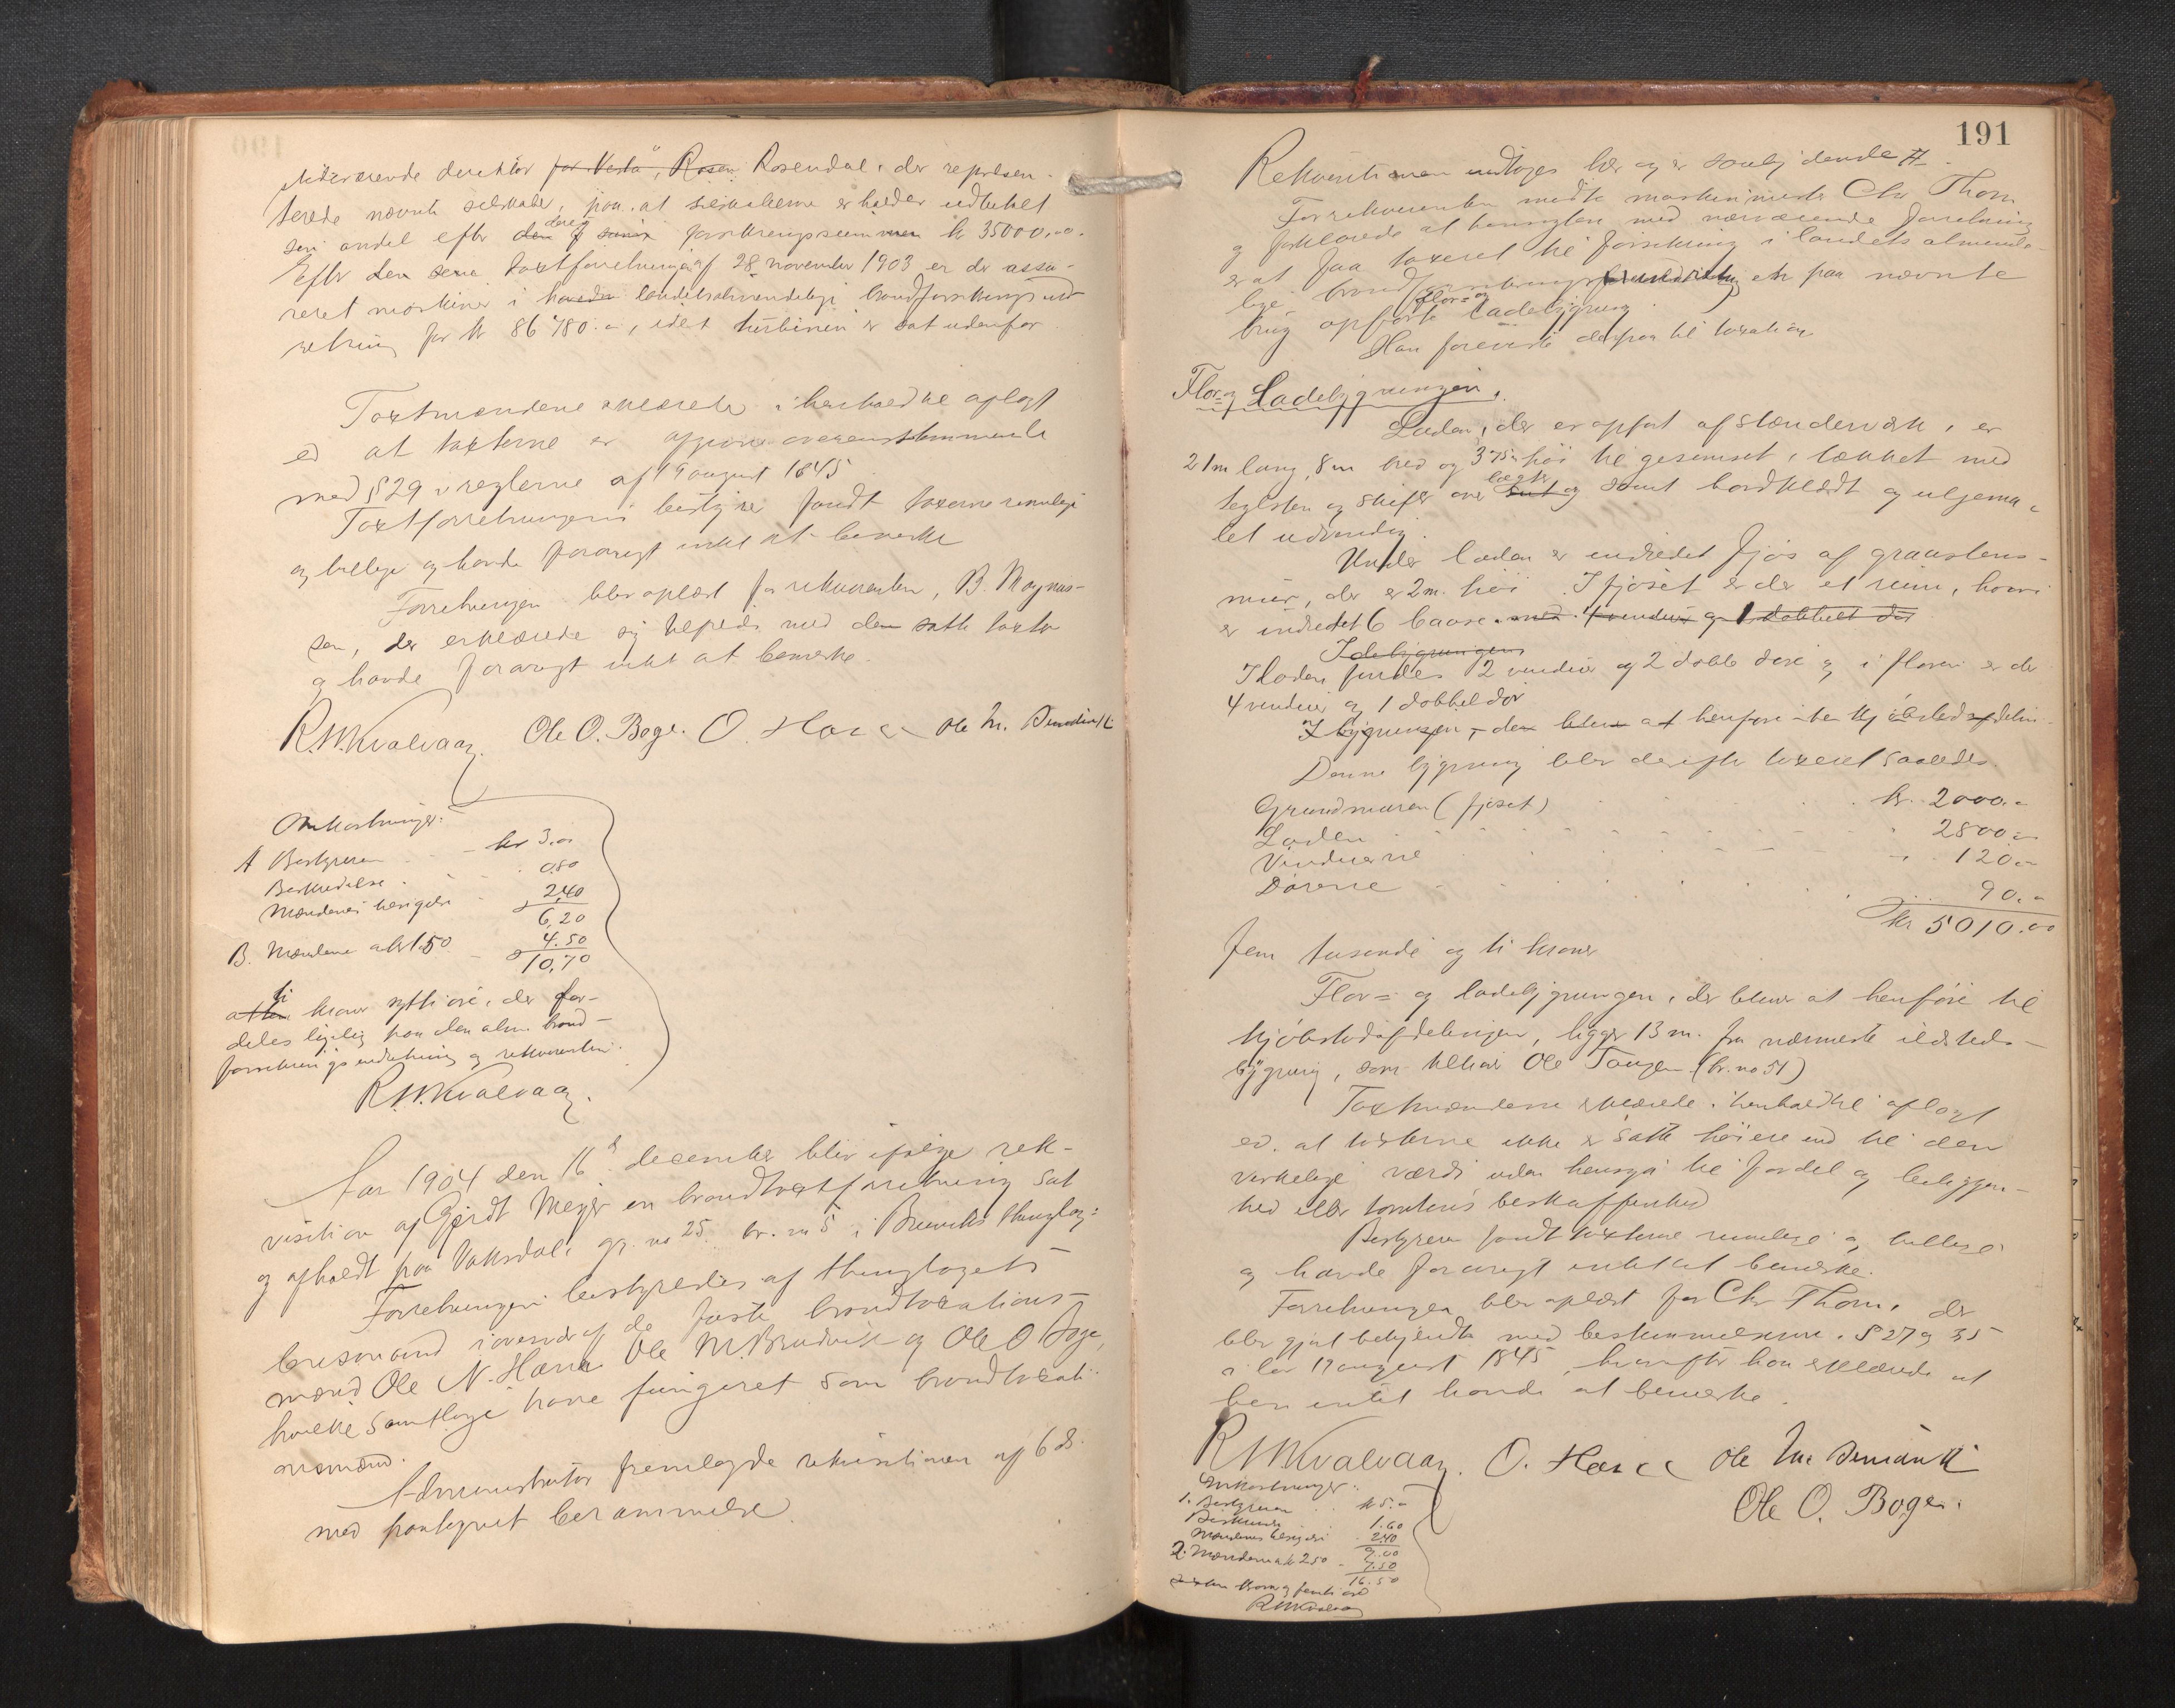 Nærværende direktør for "Vesta", Rosen Rosendal, der repræsen-
terede nævnte selskaber, paa at selskaberne erholder udbetalt
sin andel efter deres forsikringssummer kr 35000.00.
Efter den sene taxtforretning af 28 november 1903 er der assu-
reret maskiner i landets almindelige brandforsikringsind-
retning for kr 86780.-, idet turbinen er sat udenfor.
Taxtmændene erklærede i henhold til aflagt
ed at taxterne er afgivne overensstemmende
med § 29 i reglerne af 19 august 1845
Taxtforretningens bestyrer fandt taxterne rimelige
og billige og havde forøvrigt intet at bemerke
Forretningen blev oplæst for rekvirenten, B. Magnus-
sen, der erklærede sig tilfreds med den satte taxter
og havde forøvrigt intet at bemerke.
R.W.Kvalvaag. Ole O. Boge. O. Hana Ole M.
Omkostninger:
A Bestyreren kr 3.00
Beskikkelse 0.80
Mændenes 2.40
6,20
B. Mændene a kr 1.50 4.50
10,70
ti kroner sytti øre, der for-
deles ligelig paa den alm. brand-
forsikringsindretning og rekvirenten.
R.W.Kvalvaag.
Aar 1904 den 16de december blev ifølge rek-
visition af Gerdt Meyer en brandtaxtforretning sat
og afholdt paa Vaksdal, gr. no 25. br. no 5 i Bruviks thinglag.
Forretningen bestyredes af thinglagets
lensmand i overvær af de faste brandtaxations-
mænd Ole N. Hana Ole M. Brudvik og Ole O Boge,
hvilke samtlige have fungeret som brandtaxati-
onsmænd.
Administrator fremlagde rekvisitionen af 6 ds.
med paategnet berammelse.
191
Rekvisitionen indtages her og er saalydende #.
For rekvirenten mødte maskinmester Chr Thom
og forklarede at hensigten med nærværende forretning
er at faa taxeret til forsikring i landets alminde-
lige brandforsikringsindretning en paa nævnte
brug opførte flor- og ladebygning
Han foreviste derpaa til taxation
Flor- og Ladebygningen.
Laden, der er opført af stænderverk, er
21m lang, 8m bred og 3,75m høi til gesimset, tækket med
teglsten og skifer over lægter og samt bordklædt og oljema-
let udvendig.
Under laden er indredet fjøs af graastens-
mur, der er 2m. høi. I fjøset er der et rum, hvori
er indredet 6 baase. med 4 vinduer og 1 dobbelt dør
I debygningen
I laden findes 2 vinduer og 2 doble døre og i floren er der
4 vinduer og 1 dobbel dør
I bygningen, der bliver at henføre til kjøbstedsafdelin
Denne bygning blev derefter taxeret saaledes.
Grundmuren (fjøset) kr. 2000.-
Laden 2800.-
Vinduerne 120.-
Dørene 90.-
kr 5010.00
Fem tusende og ti kroner
Flor- og ladebygningen, der bliver at henføre til
kjøbstedafdelingen, ligger 13 m. fra nærmeste ildsteds-
bygning, som tilhører Ole Tangen (br. no 51)
Taxtmændene erklærede i henhold til aflagt
ed. at taxterne ikke er satte høiere end til den
virkelige værdi uden hensyn til fordel og beliggen-
hed eller tomtens beskaffenhed
Bestyreren fandt taxterne rimelige og billige
og havde forøvrigt intet at bemerke.
Forretningen blev oplæst for Chr Thom, der
blev gjort bekjendt med bestemmelserne i § 27 og 35
i lov 19 august 1845, hvorefter han erklærede at
han intet havde at bemerke.
R W Kvalvaag. O. Hana Ole M.
Ole O. Boge.
Omkostninger:
1. Bestyreren kr 5.-
1.60
Mændenes 2.40
9.00
2. Mændene a kr 2.50 7.50
16.50
seksten kroner og femti øre
RWKvalvaag